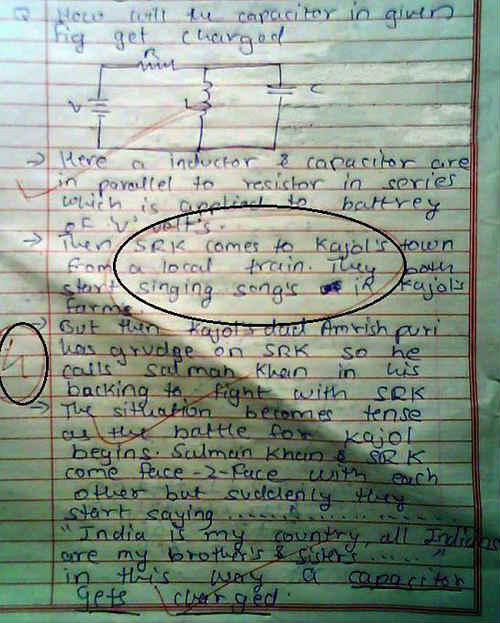 Q How will the capacitor in given
fig get charged
R
V
L
C
→ Here a inductor & capacitor are
in parallel to resistor in series
which is applied to battrey
of 'V' volt's.
→ Then SRK comes to Kajol's town
from a local train. They both
start singing song's in Kajol's
farms.
→ But then Kajol's dad Amrish puri
has grudge on SRK so he
calls Salman Khan in his
backing to fight with SRK
→ The situation becomes tense
as the battle for Kajol
begins. Salman Khan & SRK
come face-2-face with each
other but suddenly they
start saying ..................
"India is my country, all Indians
are my brother's & sisters ......"
in this way a capacitor
gets charged.